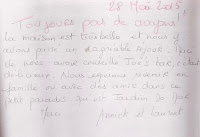 28 Mai 2015,
Toujours pas de crayon!
La maison est très belle et nous y
avons passé un agréable séjour. Merci
de nous avoir accueillis
délicieux. Nous espérons revenir en
famille ou avec des amis dans ce
petit paradis qu'est Jardin de
Annick et Laurent